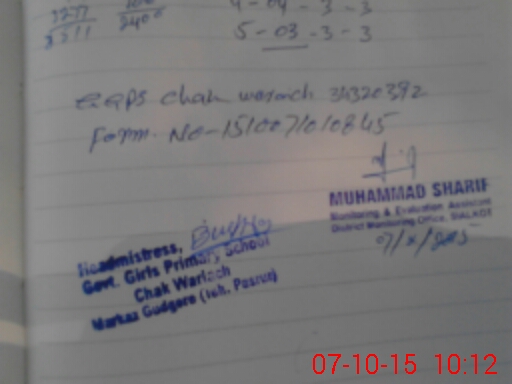 4 - 04 - 3 - 3
2400
5 - 03 - 3 - 3
GGPS chak warach 34320392
Form. No - 151007010845
MUHAMMAD SHARIF
Monitoring & Evaluation Assistant
District Monitoring Office SIALKOT
Headmistress,
Govt. Girls Primary School
Chak Warioch
Markaz Gudgore (Teh. Pasrur)
07-10-15 10:12